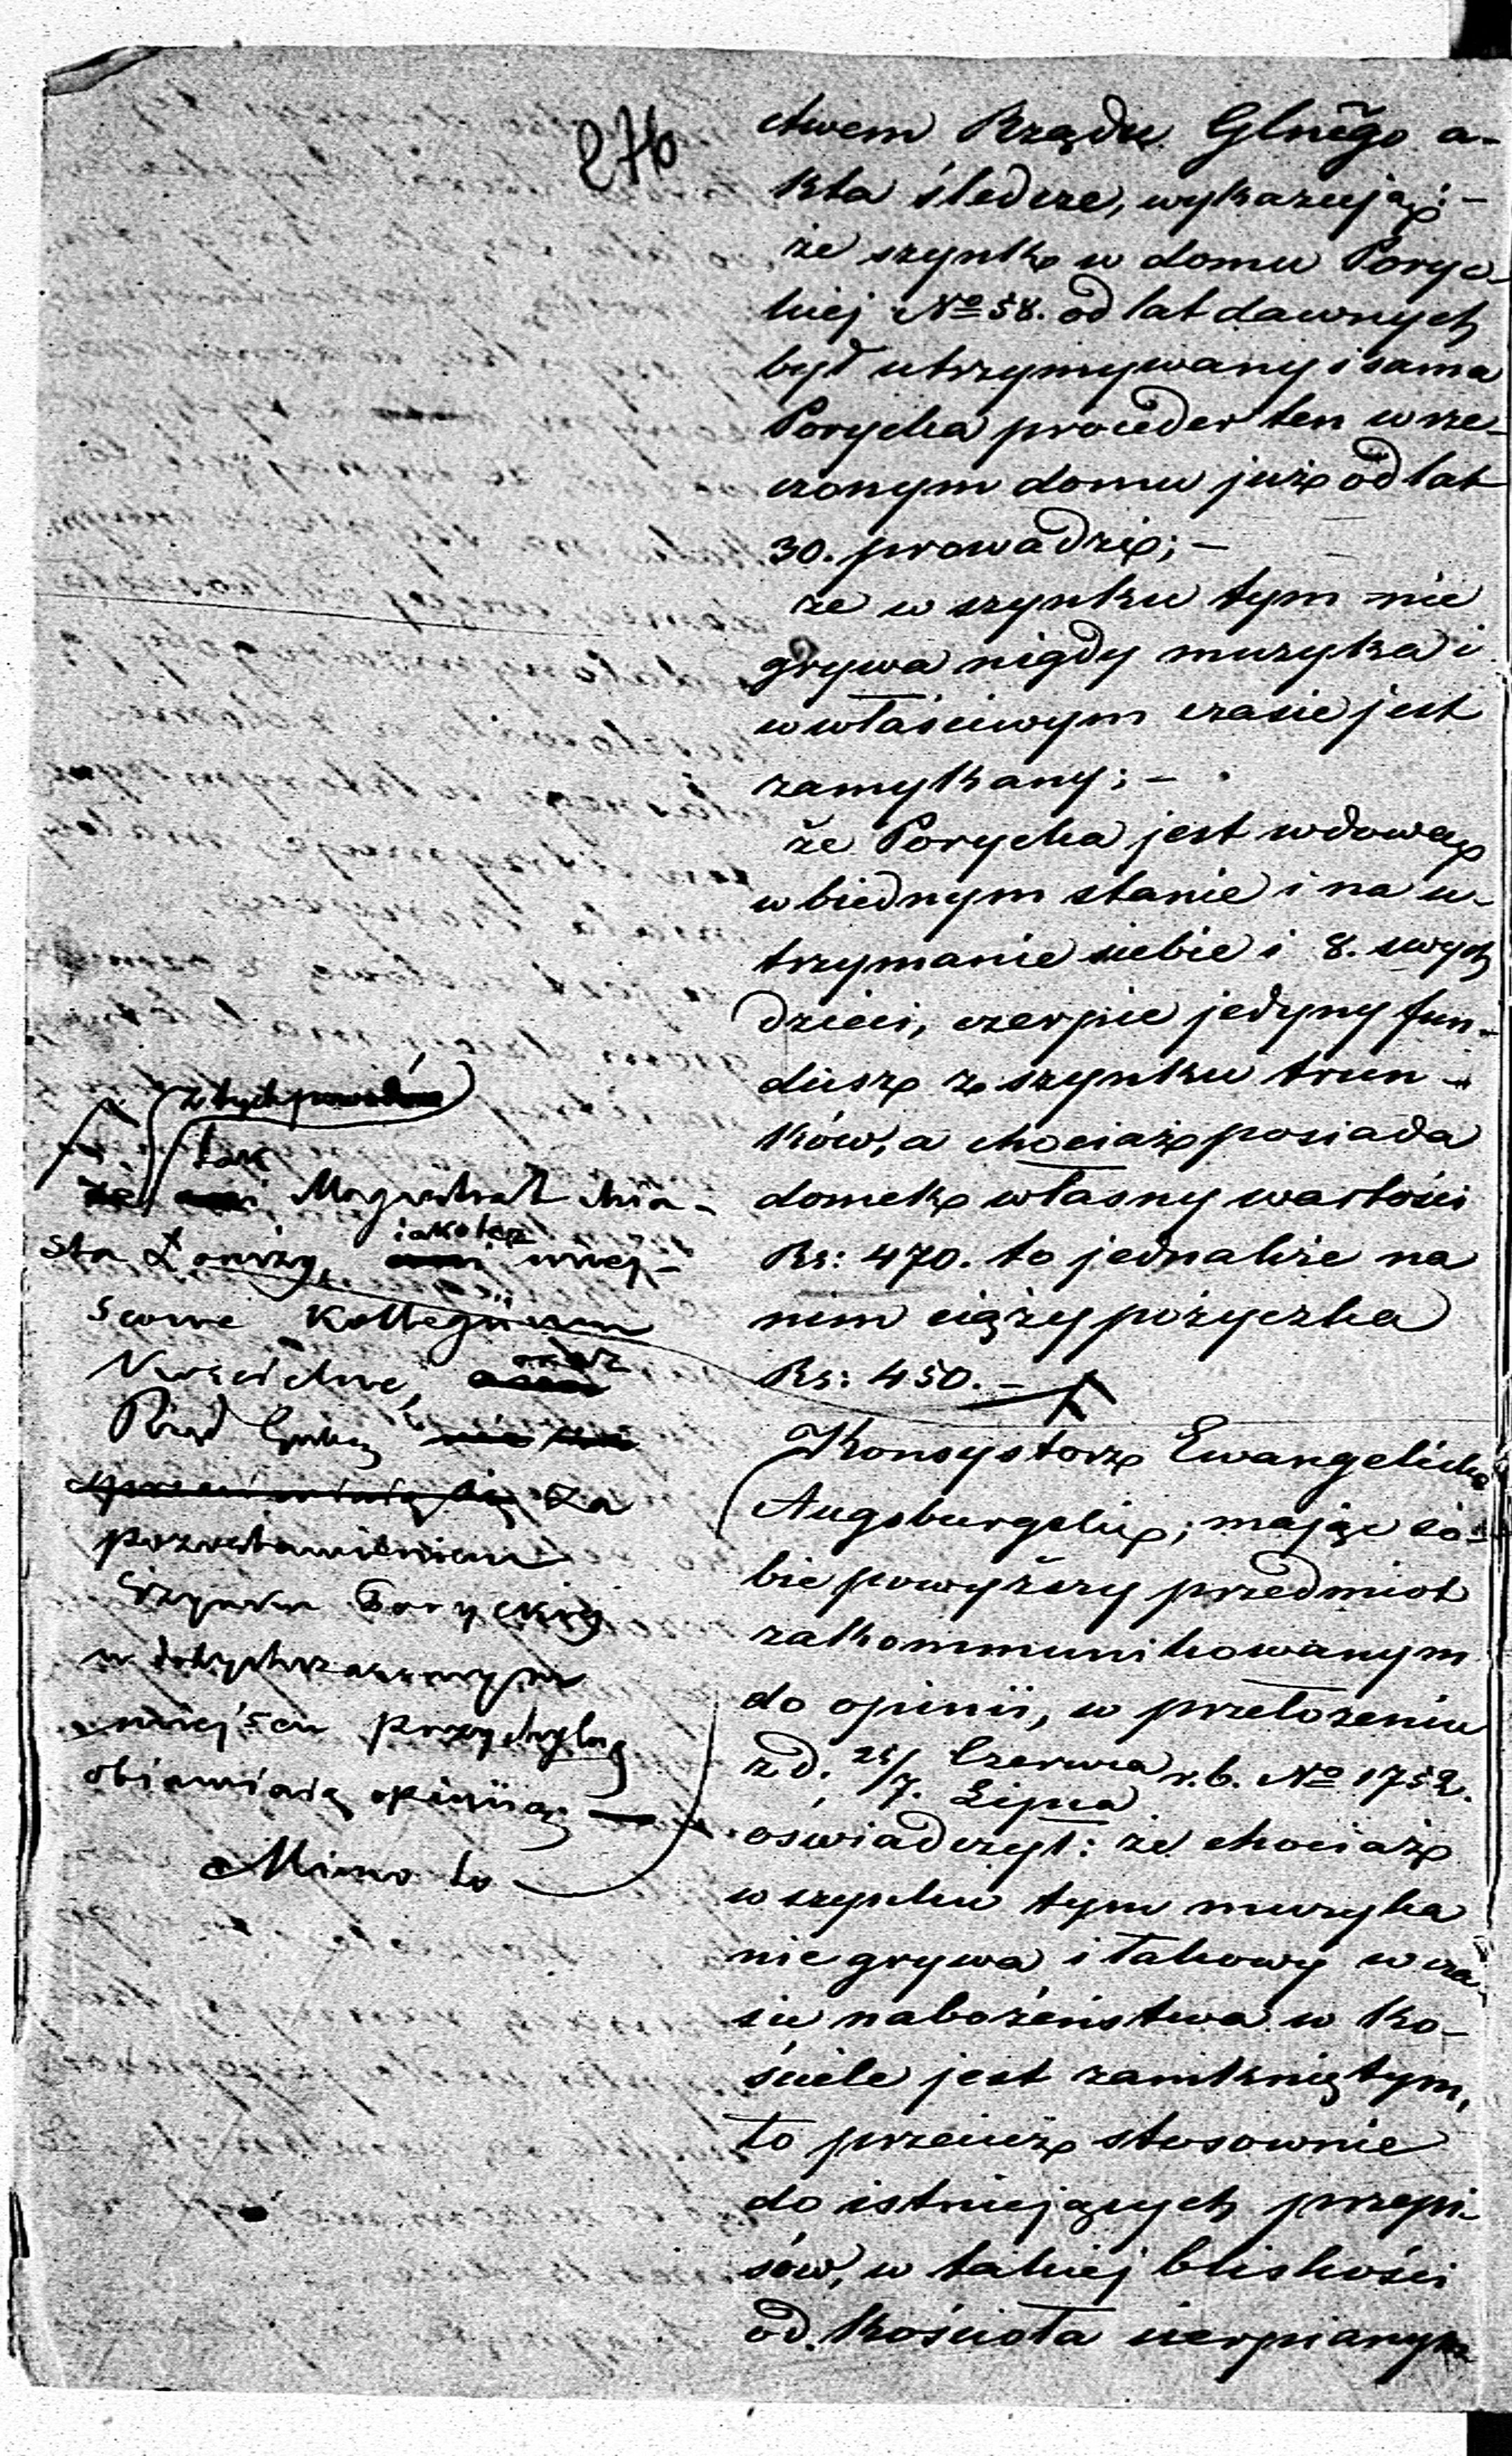 276
ctwem Rządu Glnego a-
kta śledcze, wykazują: -
że szynk w domu Poryc-
kiej No 58. od lat dawnych
był utrzymywany i sama
Porycka proceder ten w rze-
czonym domu już od lat
30. prowadzi; -
że w szynku tym nie
grywa nigdy muzyka i
w właściwym czasie jest
zamykany; -
że Porycka jest wdową
w biednym stanie i na u-
trzymanie siebie i 8. swych
dzieci, czerpie jedyny fun-
dusz z szynku trun-
ków, a chociaż posiada
domek własny wartości
Rs: 470. to jednakże na
nim ciąży pożyczka
Rs: 450. -
Konsystorz Ewangelicko
Augsburgski, mając so-
bie powyższy przedmiot
zakommunikowanym
do opinii, w przełożeniu
z d. 25/7. Czerwca/Lipca r. b. No 1752.
oświadczył: że chociaż
w szynku tym muzyka
nie grywa i takowy w cza-
sie nabożeństwa w Ko-
ściele jest zamkniętym,
to przecież stosownie
do istniejących przepi-
sów, w takiej bliskości
od Kościoła cierpianym
z tych powodów
tak
Magistrat mia-
sta Łomży, jakoteż miej-
scowe Kollegium
Kościelne, oraz
Rząd Gubny
za
pozostawieniem
szynku Poryckiej
w dotychczasowym
miejscu przychylną
objawiają opinię
Mimo to